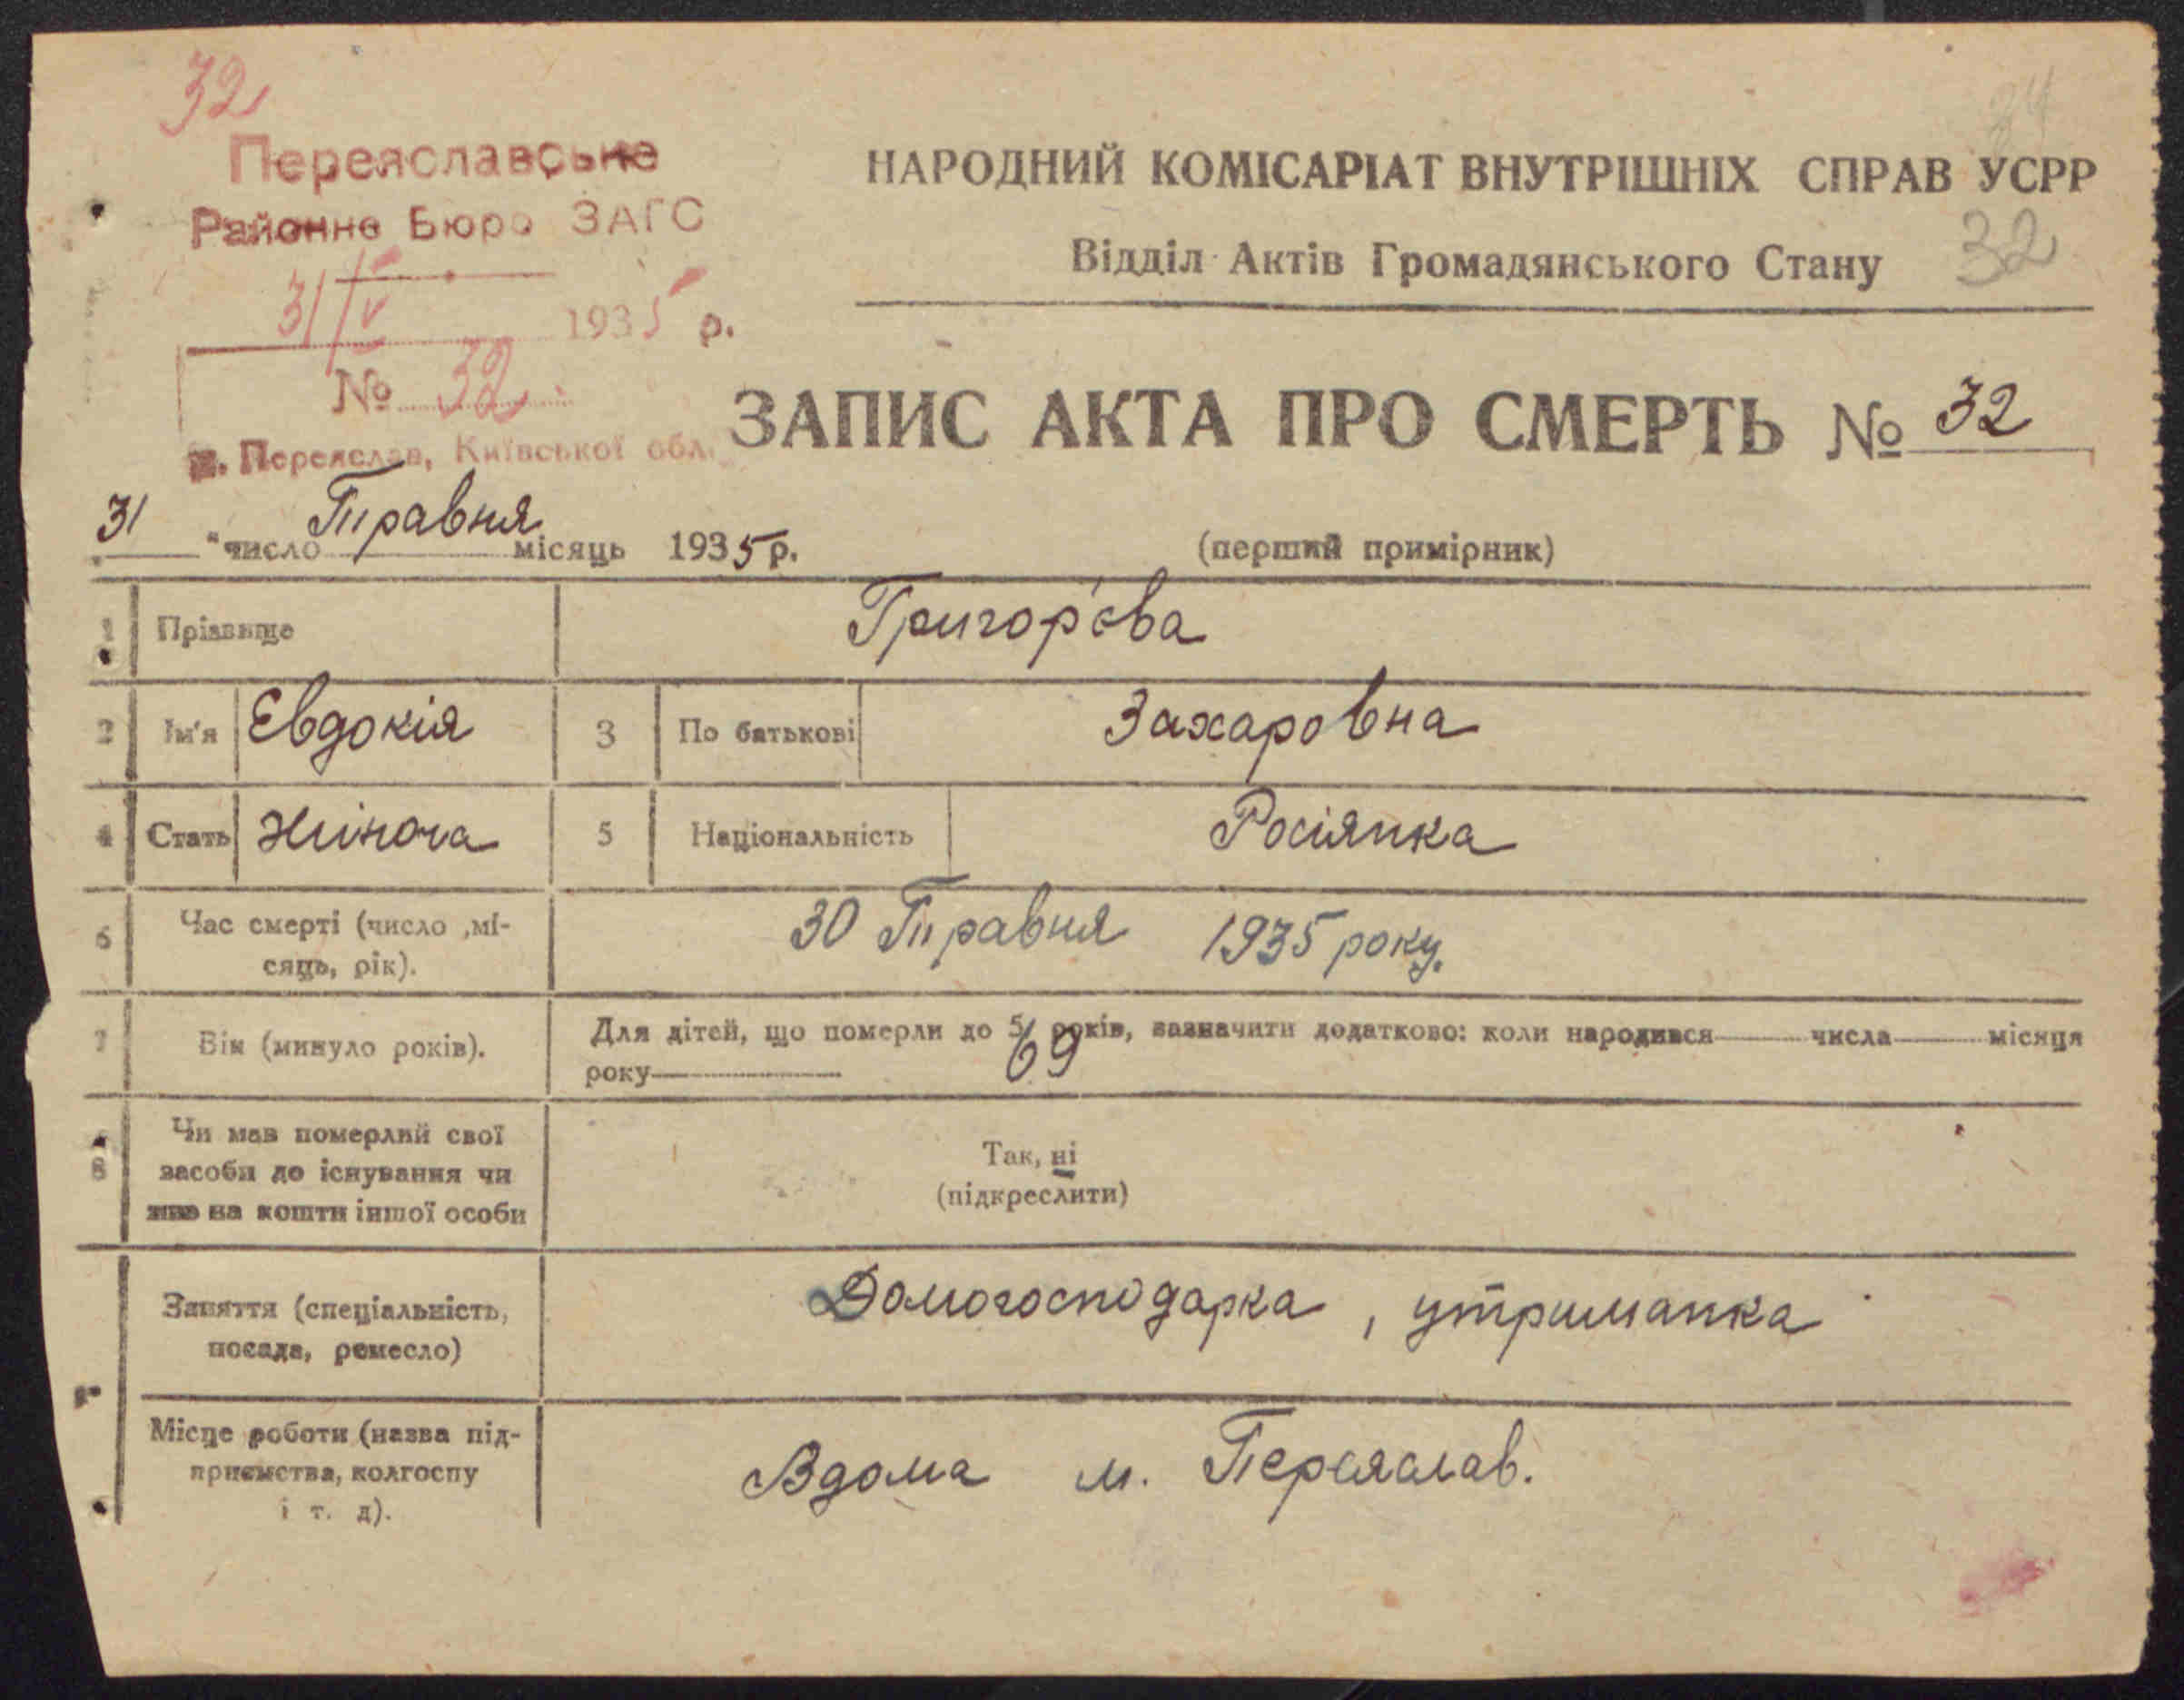 32
34
Переяславське
Районне Бюро ЗАГС
31/V 1935 р.
№ 32
м. Переяслав, Київської обл.
НАРОДНИЙ КОМІСАРІАТ ВНУТРІШНІХ СПРАВ УСРР
Відділ Актів Громадянського Стану 32
ЗАПИС АКТА ПРО СМЕРТЬ № 32
31 "число Травня місяць 1935 р. (перший примірник)
1 Прізвище Григор'єва
2 Ім'я Евдокія 3 По батькові Захаровна
4 Стать Жіноча 5 Національність Росіянка
6 Час смерті (число ,мі-
сяць, рік). 30 Травня 1935 року.
7 Вік (минуло років). Для дітей, що померли до 5 років, зазначити додатково: коли народився числа місяця
року 69
Чи мав померлий свої
8 засоби до існування чи
жив на кошти іншої особи
Так, ні
(підкреслити)
Заняття (спеціальність,
посада, ремесло) Домогосподарка, утриманка
Місце роботи (назва під-
приємства, колгоспу
і т. д). Вдома м. Переяслав.